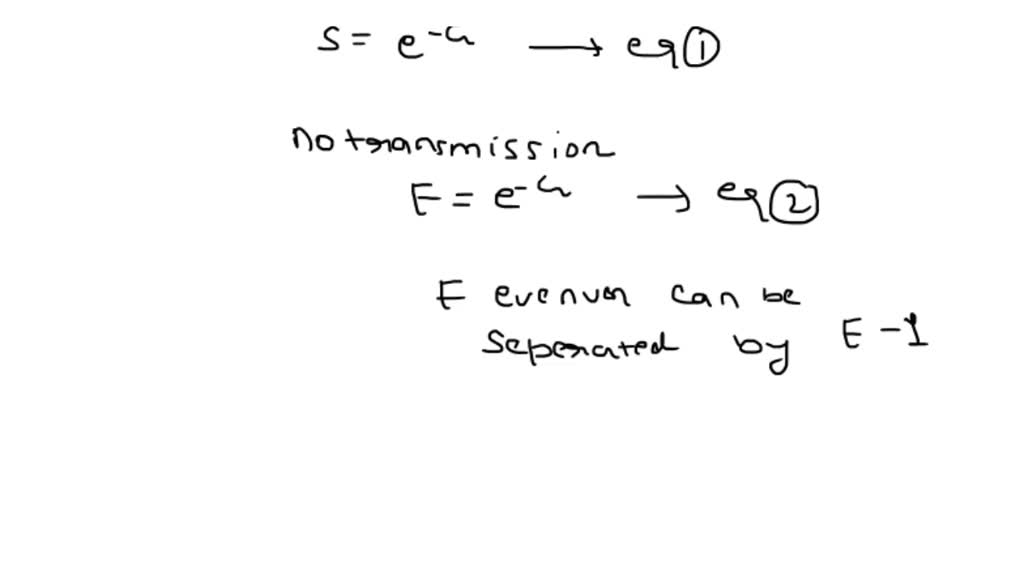 S = e^-G → eq ①
No transmission
E = e^-G → eq ②
E can be
seperated by E - 1